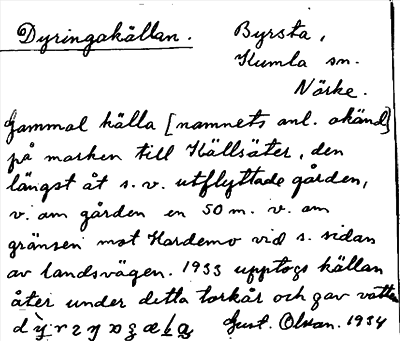 Dyringakällan.
Byrsta,
Kumla sn.
Närke.
Gammal källa [namnets anl. okänd]
på marken till Källsäter, den
längst åt s.v. utflyttade gården,
v. om gården en 50 m. v. om
gränsen mot Hardemo vid s. sidan
av landsvägen. 1933 upptogs källan
åter under detta torkår och gav vatten
Gust. Olson. 1934